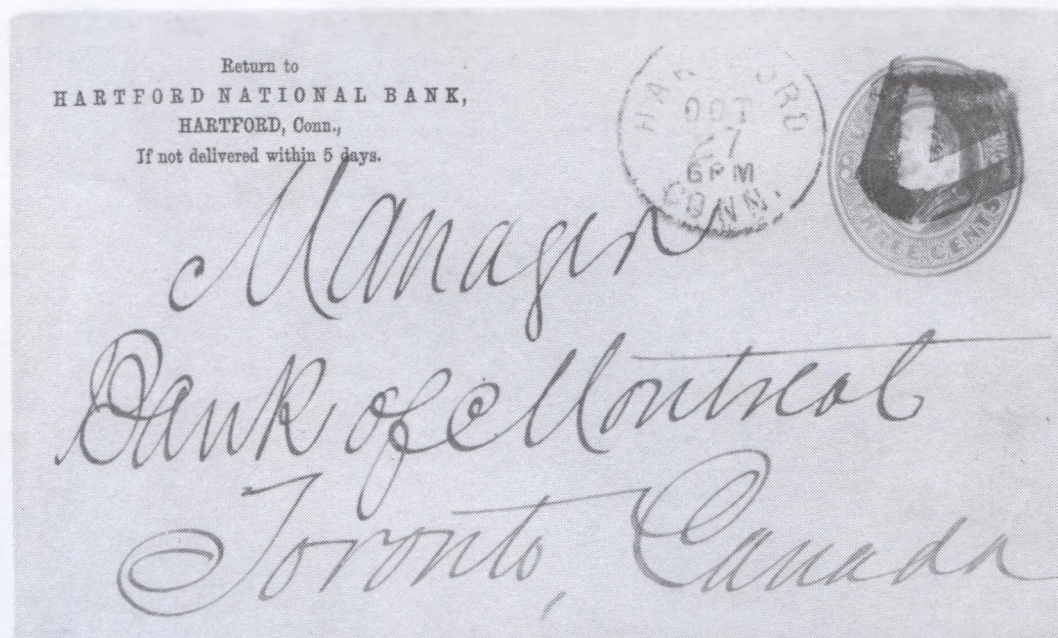 Return to
HARTFORD NATIONAL BANK,
HARTFORD, Conn.,
If not delivered within 5 days.
OCT
27
6 PM
CONN.
CENTS
Manager
Bank of Montreal
Toronto, Canada